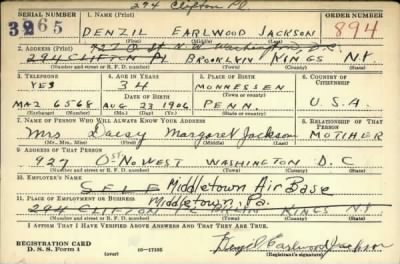 294 Clifton Pl
SERIAL NUMBER 1. NAME (Print) ORDER NUMBER
3265 DENZIL EARLWOOD JACKSON 894
(First) (Middle) (Last)
2. ADDRESS (Print)
927 O St N.W. Washington, D.C.
294 CLIFTON PL BROOKLYN KINGS N.Y.
(Number and street or R. F. D. number) (Town) (County) (State)
3. TELEPHONE 4. AGE IN YEARS 5. PLACE OF BIRTH 6. COUNTRY OF CITIZENSHIP
YES 34 MONNESSEN
DATE OF BIRTH (Town or county)
MA-2 6568 AUG 23 1906 PENN. U.S.A.
(Exchange) (Number) (Mo.) (Day) (Yr.) (State or country)
7. NAME OF PERSON WHO WILL ALWAYS KNOW YOUR ADDRESS 8. RELATIONSHIP OF THAT PERSON
Mrs Daisy Margaret Jackson MOTHER
(Mr., Mrs., Miss) (First) (Middle) (Last)
9. ADDRESS OF THAT PERSON
927 O St NO WEST WASHINGTON D.C
(Number and street or R. F. D. number) (Town) (County) (State)
10. EMPLOYER'S NAME
SELF Middletown Air Base
11. PLACE OF EMPLOYMENT OR BUSINESS Middletown, Pa.
294 CLIFTON PL BKLYN KINGS NY
(Number and street or R. F. D. number) (Town) (County) (State)
I AFFIRM THAT I HAVE VERIFIED ABOVE ANSWERS AND THAT THEY ARE TRUE.
REGISTRATION CARD
D. S. S. Form 1 (over) 16—17105 Denzil Earlwood Jackson
(Registrant's signature)